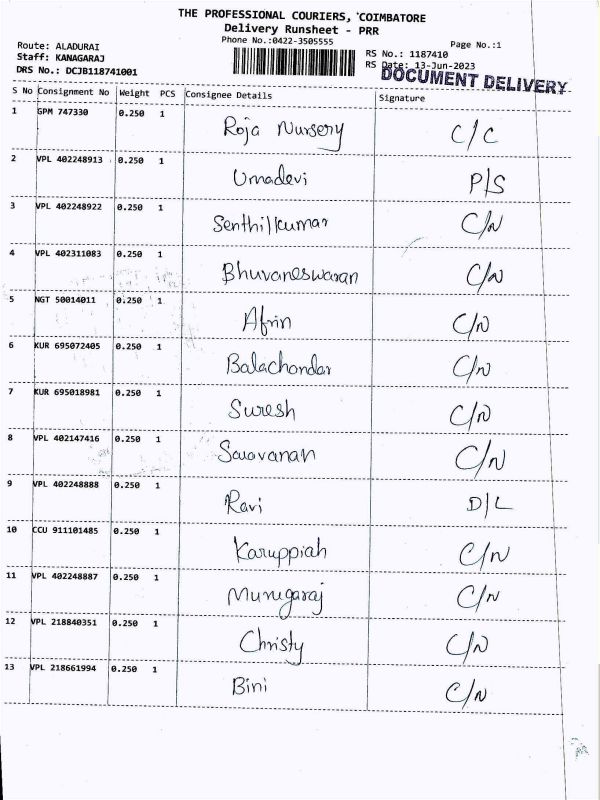 THE PROFESSIONAL COURIERS, COIMBATORE
Delivery Runsheet - PRR
Phone No.:0422-3505555
Page No.:1
Route: ALADURAI
RS No.: 1187410
Staff: KANAGARAJ
RS Date: 13-Jun-2023
DRS No.: DCJB118741001
DOCUMENT DELIVERY
S No Consignment No Weight PCS Consignee Details Signature
1 GPM 747330 0.250 1 Roja Nursery C/C
2 VPL 402248913 0.250 1 Umadevi P/S
3 VPL 402248922 0.250 1 Senthilkumar C/N
4 VPL 402311083 0.250 1 Bhuvaneswaran C/N
5 NGT 50014011 0.250 1 Afrin C/N
6 KUR 695072405 0.250 1 Balachondar C/N
7 KUR 695018981 0.250 1 Suresh C/N
8 VPL 402147416 0.250 1 Saravanan C/N
9 VPL 402248888 0.250 1 Ravi D/L
10 CCU 911101485 0.250 1 Karuppiah C/N
11 VPL 402248887 0.250 1 Murugaraj C/N
12 VPL 218840351 0.250 1 Christy C/N
13 VPL 218661994 0.250 1 Bini C/N